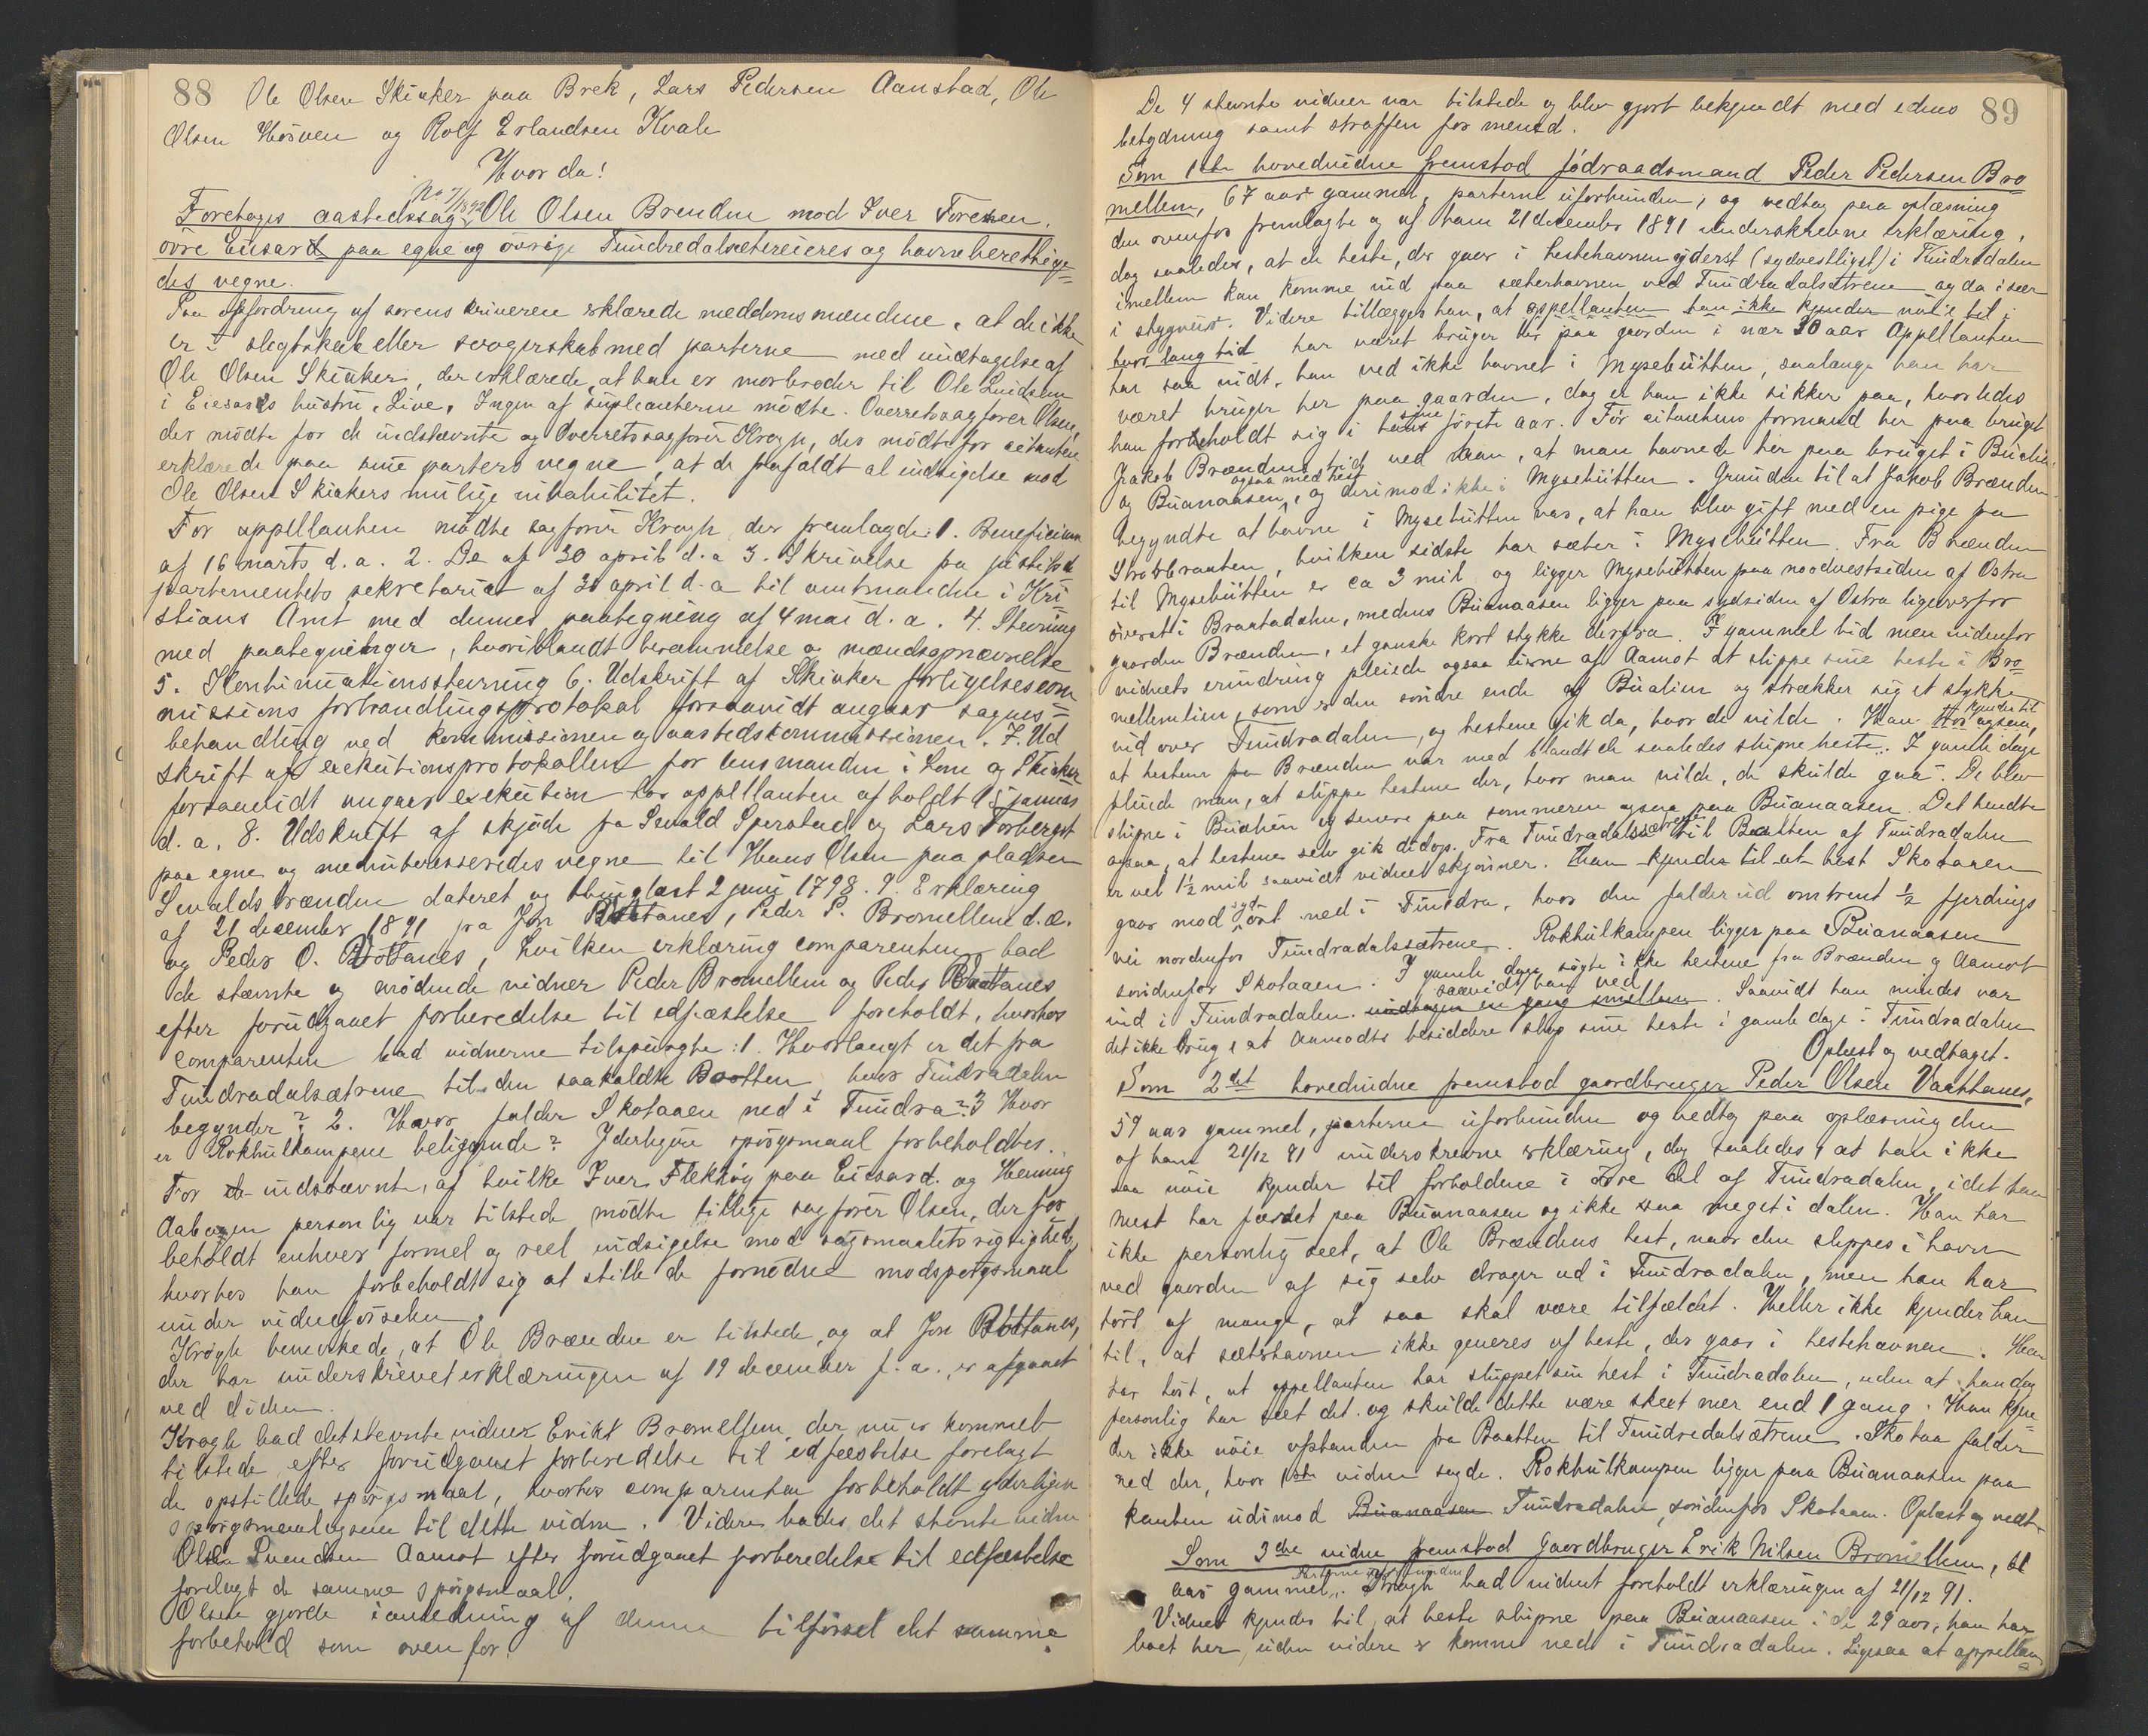 88 Ole Olsen Skiaker paa Brek, Lars Pedersen Aanstad, Ole
Olsen Høsven og Rolf Erlandsen Kvale
Hvor da!
No 7/1892
Foretages aastedssag Ole Olsen Brenden mod Iver
øvre Eiesard paa egne og øvrige Tundredalsætereieres og havneberettige=
des vegne.
Paa opfordring af sorenskriveren erklærede meddomsmændene, at de ikke
er i slegtskab eller svogerskab med parterne med undtagelse af
Ole Olsen Skiaker, der erklærede, at han er morbroder til Ole
i Eiesards hustru, Live. Ingen af suplianterne mødte. Overretssagfører Olsen,
der mødte for de indstævnte og Overretssagfører Krogh, der mødte for citanten
erklærede paa sine parters vegne, at de frafaldt al indsigelse mod
Ole Olsen Skiakers mulige inhabilitet.
For appellanten mødte sagfører Krogh der fremlagde: 1. Beneficium
af 16 marts d. a. 2. Do af 30 april d. a 3. Skrivelse fra justitsde
partementets sekretariat af 30 april d. a til amtmanden i Kri
stians Amt med dennes paategning af 4 mai d. a. 4. Stevning
med paategninger, hvoriblandt berammelse og mændsopnævnelse
5. Kontinuationsstevning 6. Udskrift af Skiaker forligelseskom
missions forhandlingsprotokol forsaavidt angaar sagens
behandling ved kommissionen og aastedskommissionen. 7. Ud
skrift af exekutionsprotokollen for lensmanden i Lom og Skiaker
forsaavidt angaar exekution hos appellanten afholdt 15 januar
d. a. 8. Udskrift af skjøde fra Sevald Sperstad og Lars Forberget
paa egne og medinteresseredes vegne til Hans Olsen paa pladsen
Sevaldsbrænden dateret og thinglæst 2 juni 1798. 9. Erklæring
af 21 december 1891 fra Jon Vaattanes, Peder P. Bromellem d. æ.
og Peder O. Vaattanes, hvilken erklæring comparenten bad
de stævnte og mødende vidner Peder Bromellem og Peder Vaattanes
efter forudgaaet forberedelse til edfæstelse foreholdt, hvorhos
comparenten bad vidnerne tilspurgte: 1. Hvorlangt er det fra
Tundradalsætrene til den saakaldte Botten, hvor Tundradalen
begynder? 2. Hvor falder Skotaaen ned i Tundra? 3 Hvor
er Rokhulkampene beliggende? Yderligere spørgsmaal forbeholdtes.
For de indstævnte, af hvilke Iver Flekkøy paa Eiesard. og Henning
Aabogen personlig var tilstede mødte tillige sagfører Olsen, der for
beholdt enhver formel og reel indsigelse mod søgsmaalets rigtighed,
hvorhos han forbeholdt sig at stille de fornødne modspørgsmaal
under vidneførselen.
Krogh bemerkede, at Ole Brænden er tilstede, og at Jon Vaattanes,
der har underskrevet erklæringen af 19 december f. a., er afgaaet
ved døden.
Krogh bad det stevnte vidne Erikt Bromellem, der nu er kommet
tilstede efter forudgaaet forberedelse til edfæstelse forelagt
de opstillede spørgsmaal, hvorhos comparenten forbeholdt yderligere
spørgsmaal ogsaa til dette vidne. Videre bades det stevnte vidne
Ole Svendsen Aamot efter forudgaaet forberedelse til edfæstelse
forelagt de samme spørgsmaal.
Olsen gjorde i anledning af denne tilførsel det samme
forbehold som ovenfor.
De 4 stevnte vidner var tilstede og blev gjort bekjendt med edens 89
betydning samt straffen for mened.
Som 1ste hovedvidne fremstod fødraadsmand Peder Pedersen Bro
mellem, 67 aar gammel, parterne uforbunden, og vedtog paa oplæsning
den ovenfor fremlagte og af ham 21 december 1891 underskrevne erklæring,
dog saaledes, at de heste, der gaar i hestehavnen yderst (sydvestligst) i Tundradalen
imellem kan komme ind paa sæterhavnen ved Tundradalsætrene og da især
i stygveir. Videre tillægger han, at appellanten han ikke kjender nøie til i
hvor lang tid har været bruger her paa gaarden i nær 30 aar Appellanten
har saa vidt han ved ikke havnet i Mysehütten, saalænge han har
været bruger her paa gaarden, dog er han ikke sikker paa, hvorledes
han forbeholdt sig i hans sine første aar. Før citantens formand her paa bruget
Jakob Brændens tid ved han, at man havnede her paa bruget i Bualien
og Buanaasen, ogsaa med hest og derimod ikke i Mysehütten. Grunden til at Jakob Brænden
begyndte at havne i Mysehütten var, at han blev gift med en pige fra
, hvilken sidste har sæter i Mysehütten. Fra Brænden
til Mysehütten er ca 3 mil og ligger Mysehütten paa nordvestsiden af Ostra
øverst i Braatadalen, medens Buanaasen ligger paa sydsiden af Ostra ligeoverfor
gaarden Brænden, et ganske kort stykke derfra. I gammel tid men indenfor
vidnets erindring pleiede ogsaa eierne af Aamot at slippe sine heste i Bro
mellemlien, som er den søndre ende af Bualien og strækker sig et stykke
ind over Tundradalen, og hestene gik da, hvor de vilde. Han kjender til ogsaa,
at hestene fra Brænden var med blandt de saaledes slupne heste. I gamle dage
pleiede man, at slippe hestene der, hvor man vilde, de skulde gaa. De blev
slupne i Bualien og senere paa sommeren ogsaa paa Buanaasen. Det hendte
ogsaa, at hestene selv gik didop. Fra Tundradalssætrene til Botten af Tundradalen
er vel 1½ mil saavidt vidnet skjønner. Han kjender til at hest Skotaaen
gaar mod syd øst ned i Tundra, hvor den falder ud omtrent ½ fjerdings
vei nordenfor Tundradalssætrene. Rokhulkampen ligger paa Buanaasen
søndenfor Skotaaen. I gamle dage søgte ikke hestene fra Brænden og Aamot
ind i Tundradalen saavidt han ved undtagen en gang imellem. Saavidt han mindes var
det ikke brug, at Aamodts besiddere slap sine heste i gamle dage i Tundradalen
Oplæst og vedtaget.
Som 2det hovedvidne fremstod gaardbruger Peder Olsen Vaattanes,
59 aar gammel, parterne uforbunden og vedtog paa oplæsning den
af ham 21/12 91 underskrevne erklæring, dog saaledes, at han ikke
saa nøie kjender til forholdene i øvre del af Tundradalen, idet han
mest har færdet paa Buanaasen og ikke saa meget i dalen. Han har
ikke personlig seet, at Ole Brændens hest, naar den slippes i havn
ved gaarden af sig selv drager ud i Tundradalen, men han har
hørt af mange, at saa skal være tilfældet. Heller ikke kjender han
til, at sæterhavnen ikke generes af heste, der gaar i hestehavnen. Han
har hørt, at appellanten har sluppet sin hest i Tundradalen, uden at han dog
personlig har seet det og skulde dette være skeet mer end 1 gang. Han kjen=
der ikke nøie afstanden fra Baatten til Tundredalsætrene. Skotaa falder
ned der, hvor 1ste vidne sagde. Rokhulkampen ligger paa Buanaasen paa
kanten udimod Buanaasen Tundradalen, søndenfor Skotaaen. Oplæst og vedt
Som 3die vidne fremstod gaardbruger Erik Nilsen Bromellem, 51
aar gammel, parterne uforbunden. Krogh bad vidnet foreholdt erklæringen af 21/12 91.
Vidnet kjender til, at heste slupne paa Buanaasen i de 29 aar, han har
boet her, uden videre er komne ned i Tundradalen. Ligesaa at appellan